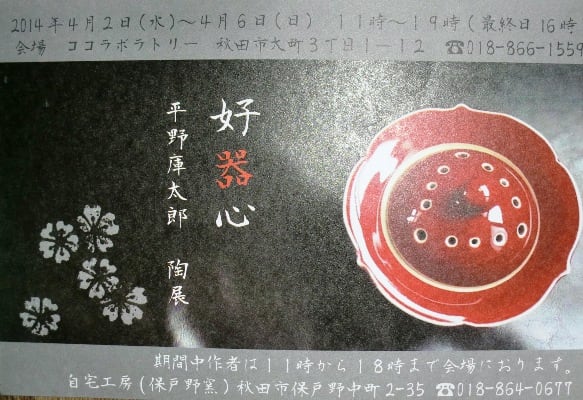 2014年4月2日(水)～4月6日(日) 11時～19時(最終日16時
会場 ココラボラトリー 秋田市大町3丁目1－12 ☎018-866-1559
好器心
平野庫太郎 陶展
期間中作者は11時から18時まで会場におります。
自宅工房(保戸野窯)秋田市保戸野中町2-35 ☎018-864-0677